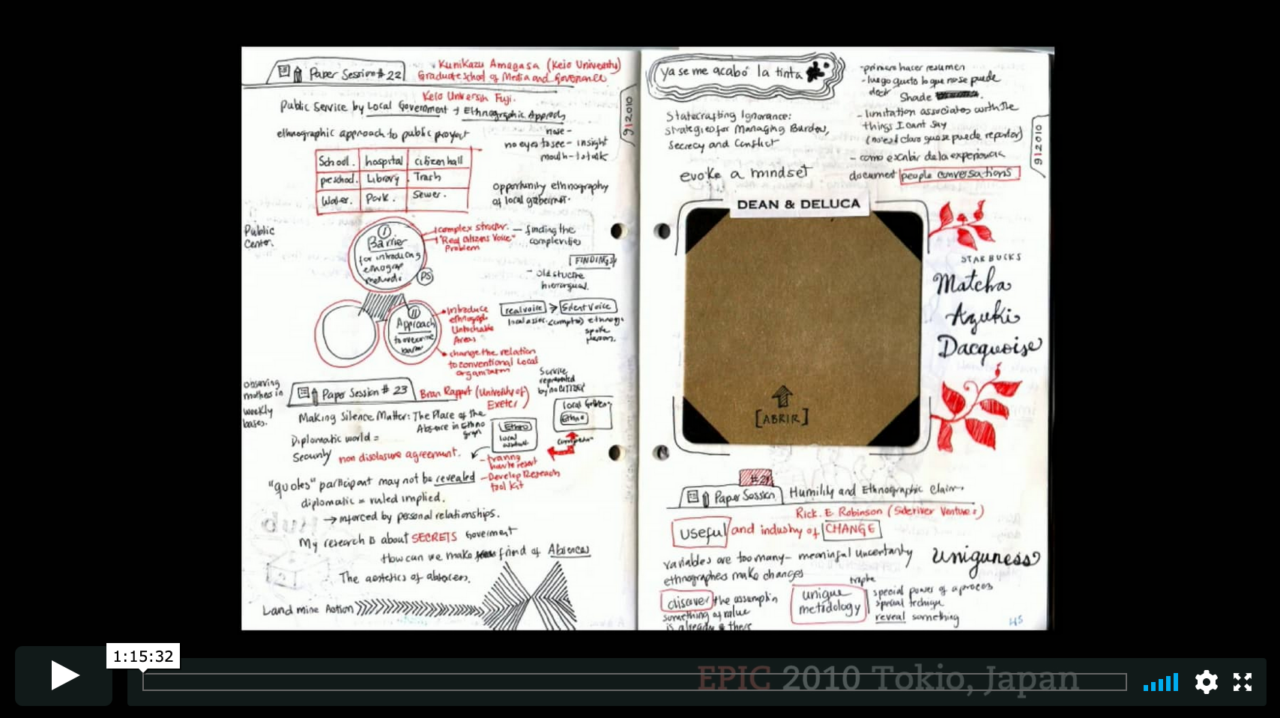 Paper Session # 22
Kunikazu Amagasa (Keio University)
Graduate School of Media and Governance
Public Service by Local Government + Ethnographic Approach
ethnographic approach to public proyect
no eyes to see - insight
mouth - to talk
School. hospital citizen hall
preschool. Library. Trash
Water. Park. Sewer.
opportunity ethnography
of local goberment.
Public
Center.
I
Barrier
for introducing
ethnograph
methods
PS
complex structer.
"Real citizens Voice"
Problem
- finding the
complexities
FINDINGS
- old structre
hierarquical.
II
Approach
to overcome
barrier
introduce
ethnograp
Untochable
Areas
real voice → Silent Voice
change the relation
to conventional Local
organization
observing
mothes in
weekly
bases.
Paper Session # 23
Brian Rappert (University of
Exeter)
Making Silence Matter: The Place of the
Absence in Ethno
graph
Ethno
local
Local Gobern
Ethno
Diplomatic world =
Security non disclosure agreement.
- Develop Research
tool Kit
"quotes" participant may not be revealed
diplomatic = ruled implied.
→ inforced by personal relationships.
My research is about SECRETS Goverment
How can we make friend of Absences
The aestetics of absences.
Land mine Action
9|2010
ya se me acabó la tinta
- primero hacer resumen
- luego gusto lo que no se puede
decir
Shade
- limitation associates with the
things I cant say
- como escribir de la experiencia
document people conversations
9|2010
Statecrafting Ignorance:
strategies for Managing Burden,
Secrecy and Conflict
evoke a mindset
DEAN & DELUCA
[ABRIR]
STARBUCKS
Matcha
Azuki
Dacquoise
Paper Session
Humility and Ethnographic Claim
Rick. E. Robinson (Sideriver Ventures)
Useful and industry of CHANGE
variables are too many - meaningful uncertainty
ethnographers make changes
Uniguness
discover the assumption
something of value
is already there
unique
metodology
special power of a process
special technique
reveal something
1:15:32
EPIC 2010 Tokio, Japan